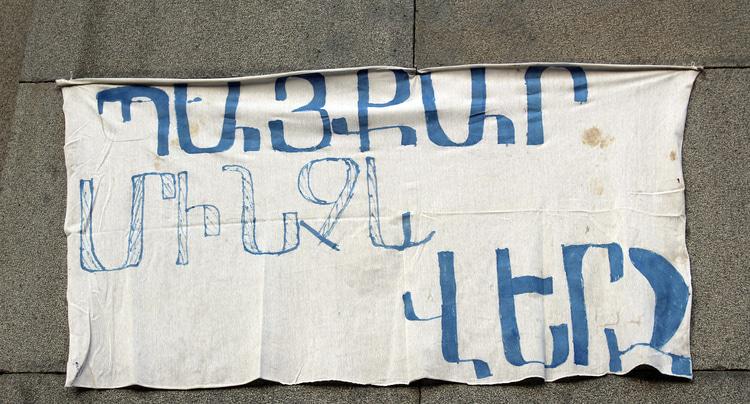 ՊԱՅՔԱՐ
ՄԻՆՉԵՎ
ՎԵՐՋ